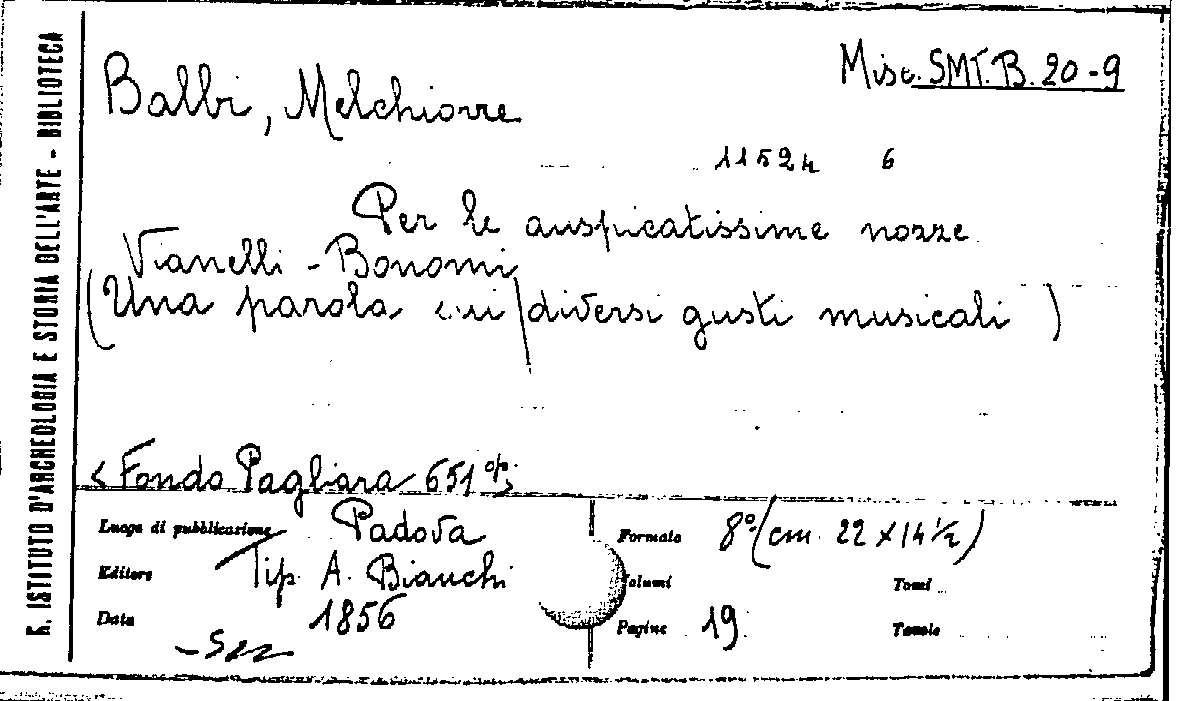 R. ISTITUTO D'ARCHEOLOGIA E STORIA DELL'ARTE - BIBLIOTECA
Misc. SMT. B. 20-9
Balbi, Melchiorre
11524 6
Per le auspicatissime nozze
Vianelli - Bonomi
(Una parola sui diversi gusti musicali)
< Fondo Pagliara 651
Luogo di pubblicazione Padova
Formato 8° (cm. 22 x 14 ½)
Editore Tip. A. Bianchi
Volumi Tomi
Data 1856
Pagine 19. Tavole